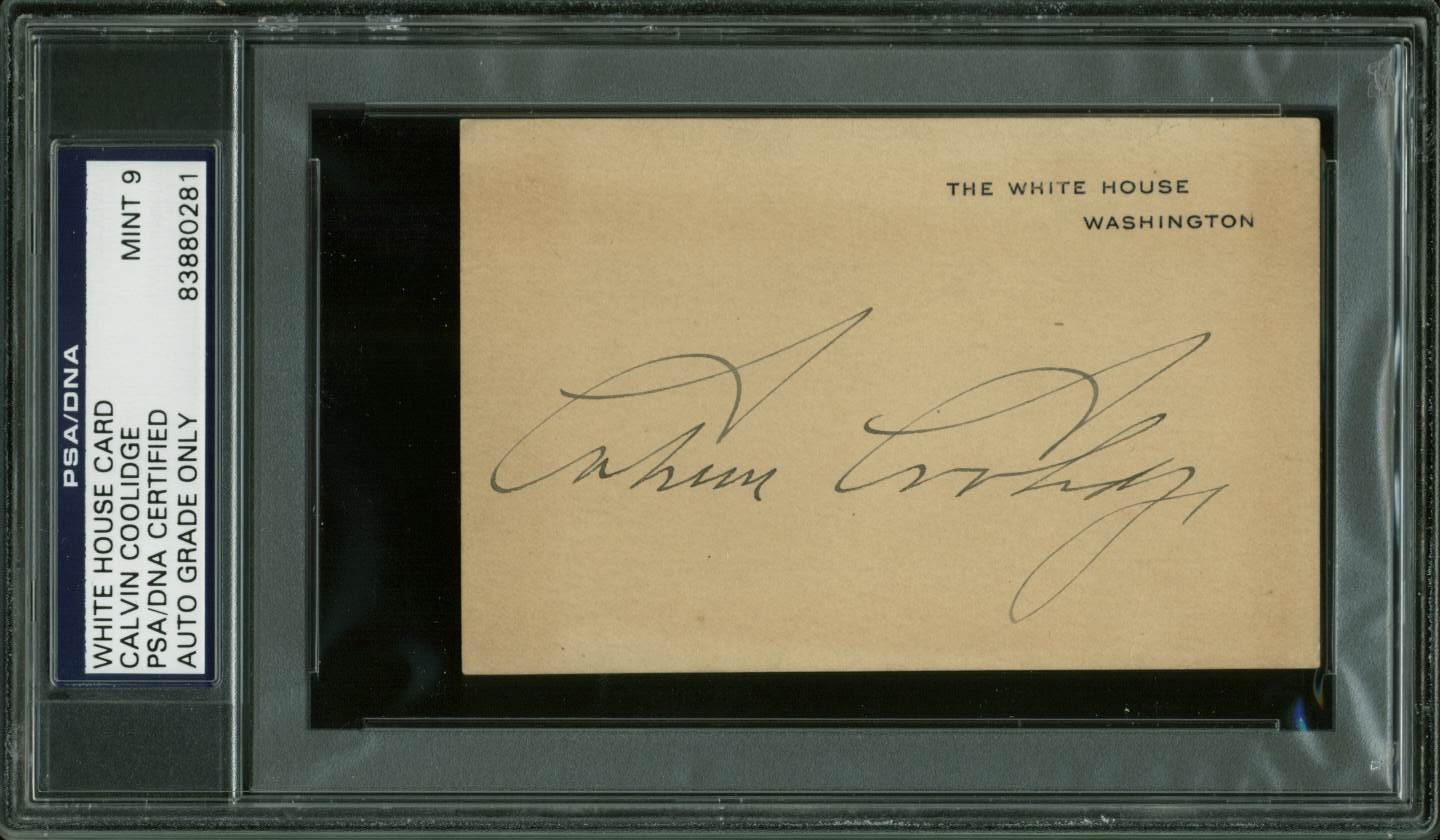 PSA/DNA
WHITE HOUSE CARD MINT 9
CALVIN COOLIDGE
PSA/DNA CERTIFIED
AUTO GRADE ONLY 83880281
THE WHITE HOUSE
WASHINGTON
Calvin Coolidge